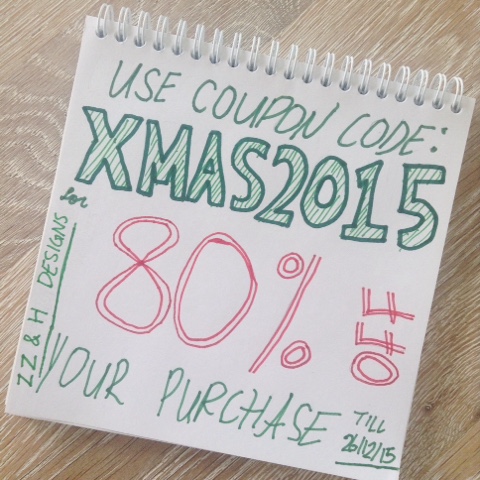 USE COUPON CODE:
XMAS2015
for
80% OFF
YOUR PURCHASE
TILL
26/12/15
ZZ & H DESIGNS